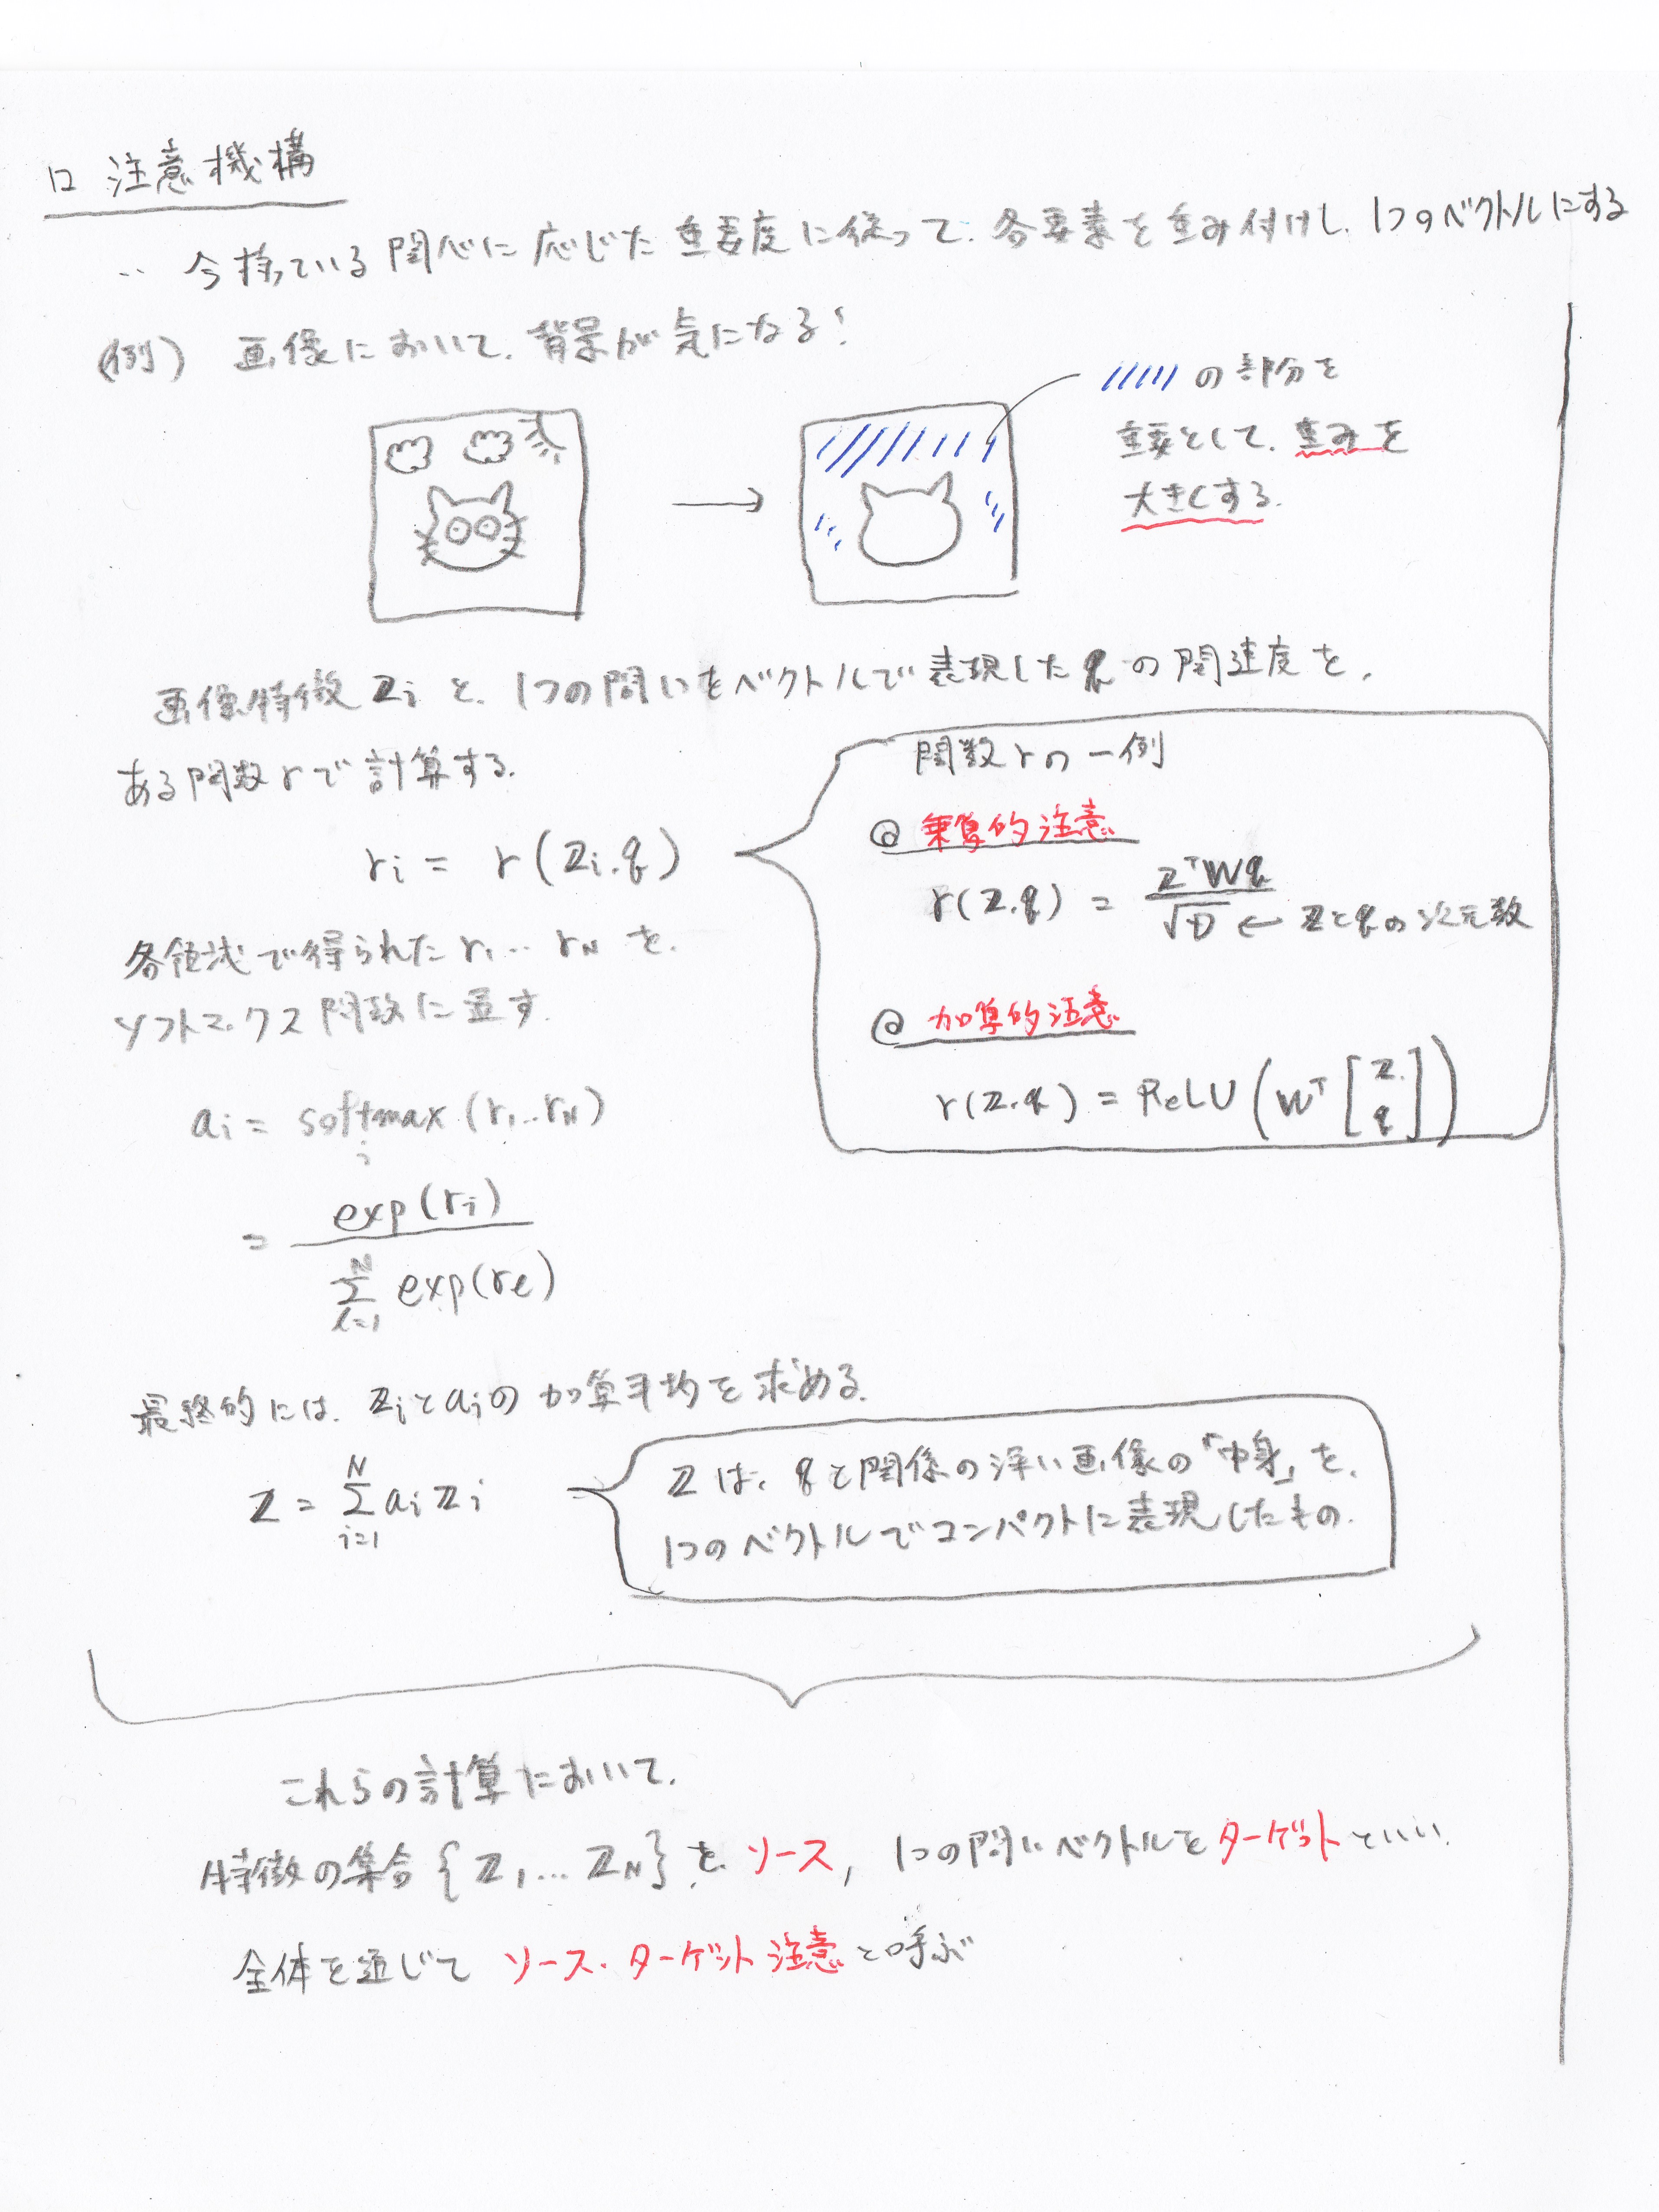 □ 注意機構
‥ 今持っている関心に応じた重要度に従って、各要素を重み付けし、1つのベクトルにする
(例) 画像において、背景が気になる!
///// の部分を
重要として、重みを
大きくする。
画像特徴 zi と、1つの問いをベクトルで表現した q の関連度を、
ある関数rで計算する。
ri = r(zi, q)
関数rの一例
◎ 乗算的注意
r(z, q) = zᵀWq / √D ← zとqの次元数
◎ 加算的注意
r(z, q) = ReLU(wᵀ[z q])
各領域で得られた r1 … rN を、
ソフトマックス関数に直す。
ai = softmax i (r1…rN)
= exp(ri) / Σ N l=1 exp(rl)
最終的には、zi と ai の加算平均を求める。
z = Σ N i=1 ai zi
zは、qと関係の深い画像の「中身」を、
1つのベクトルでコンパクトに表現したもの。
これらの計算において、
特徴の集合 {z1, … zN} を ソース, 1つの問いベクトルをターゲットといい、
全体を通じて ソース・ターゲット注意 と呼ぶ